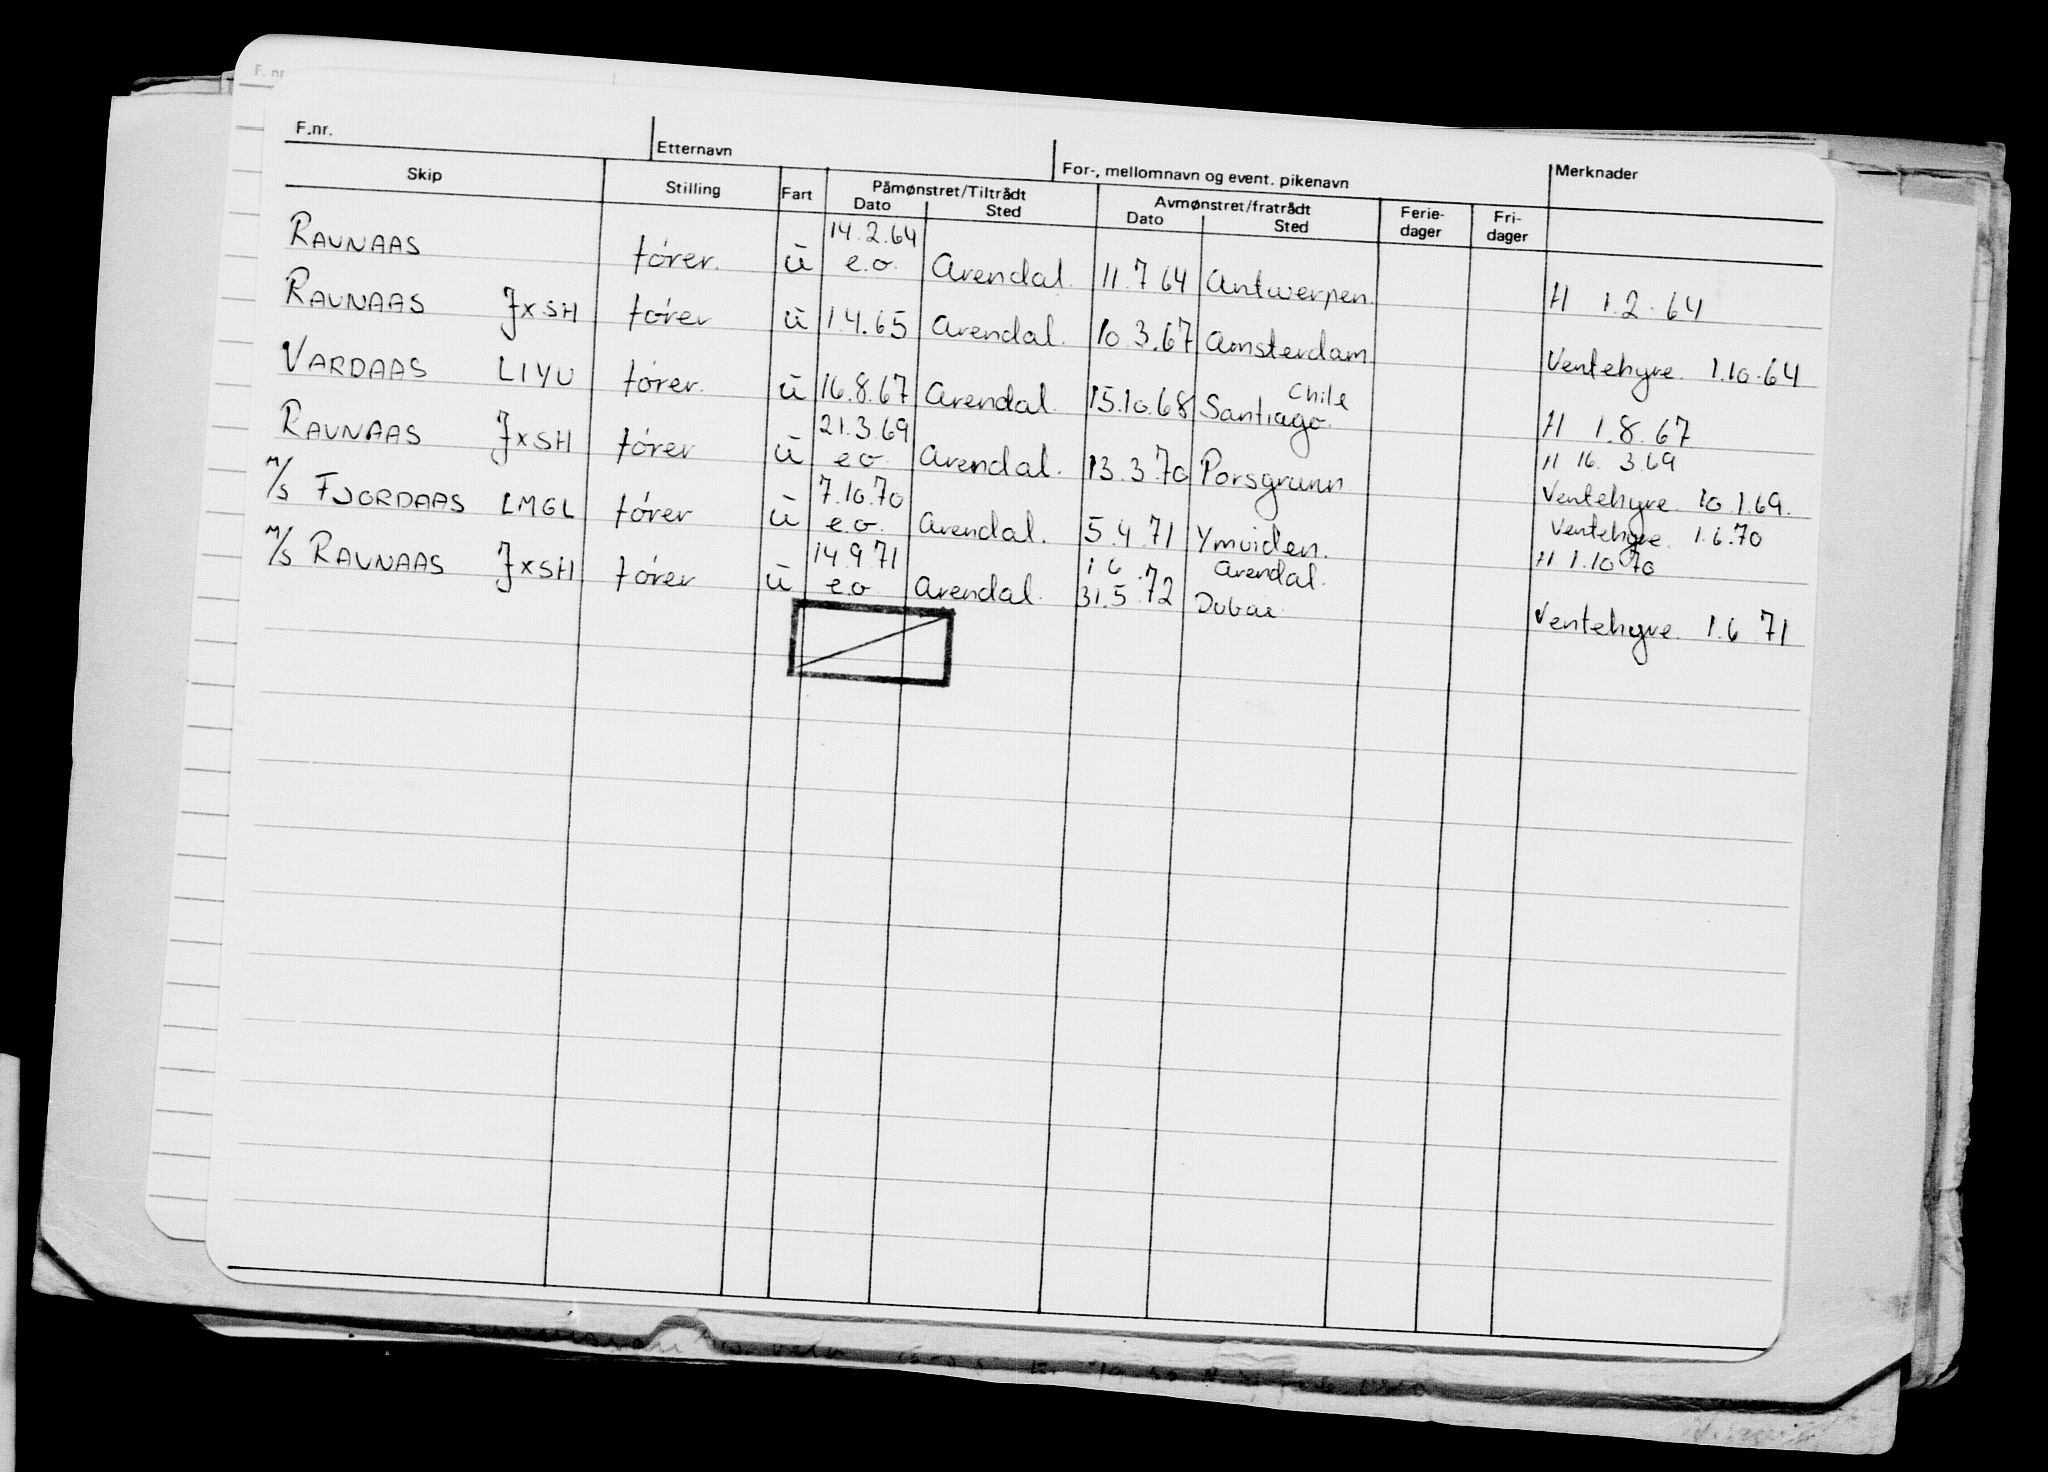 F.nr.
Etternavn
For-, mellomnavn og event. pikenavn
Merknader
Skip Stilling Fart Påmønstret/Tiltrådt Dato Sted Avmønstret/fratrådt Dato Sted Ferie-dager Fri-dager
14.2.64
RAVNAAS fører. ū e.o. Arendal. 11.7 64 Antwerpen. H 1.2.64
RAVNAAS JXSH fører ū 1.4.65 Arendal. 10.3.67 Amsterdam Ventehyre. 1.10.64
Chile
VARDAAS LIYU fører. ū 16.8.67 Arendal. 15.10.68 Santiago. H 1.8.67
21.3.69 H 16. 3.69
RAVNAAS JXSH fører ū e o. Arendal. 13.3.70 Porsgrunn Ventehyre. 10.1.69.
7.10.70 Ventehyre. 1.6.70
M/S FJORDAAS LMGL fører ū e.o. Arendal. 5.4.71 Ymuiden. H 1.10 70
14.9.71 1.6 Arendal.
M/S RAVNAAS JXSH fører ū e.o. Arendal. 31.5.72 Dubai. Ventehyre. 1.6 71